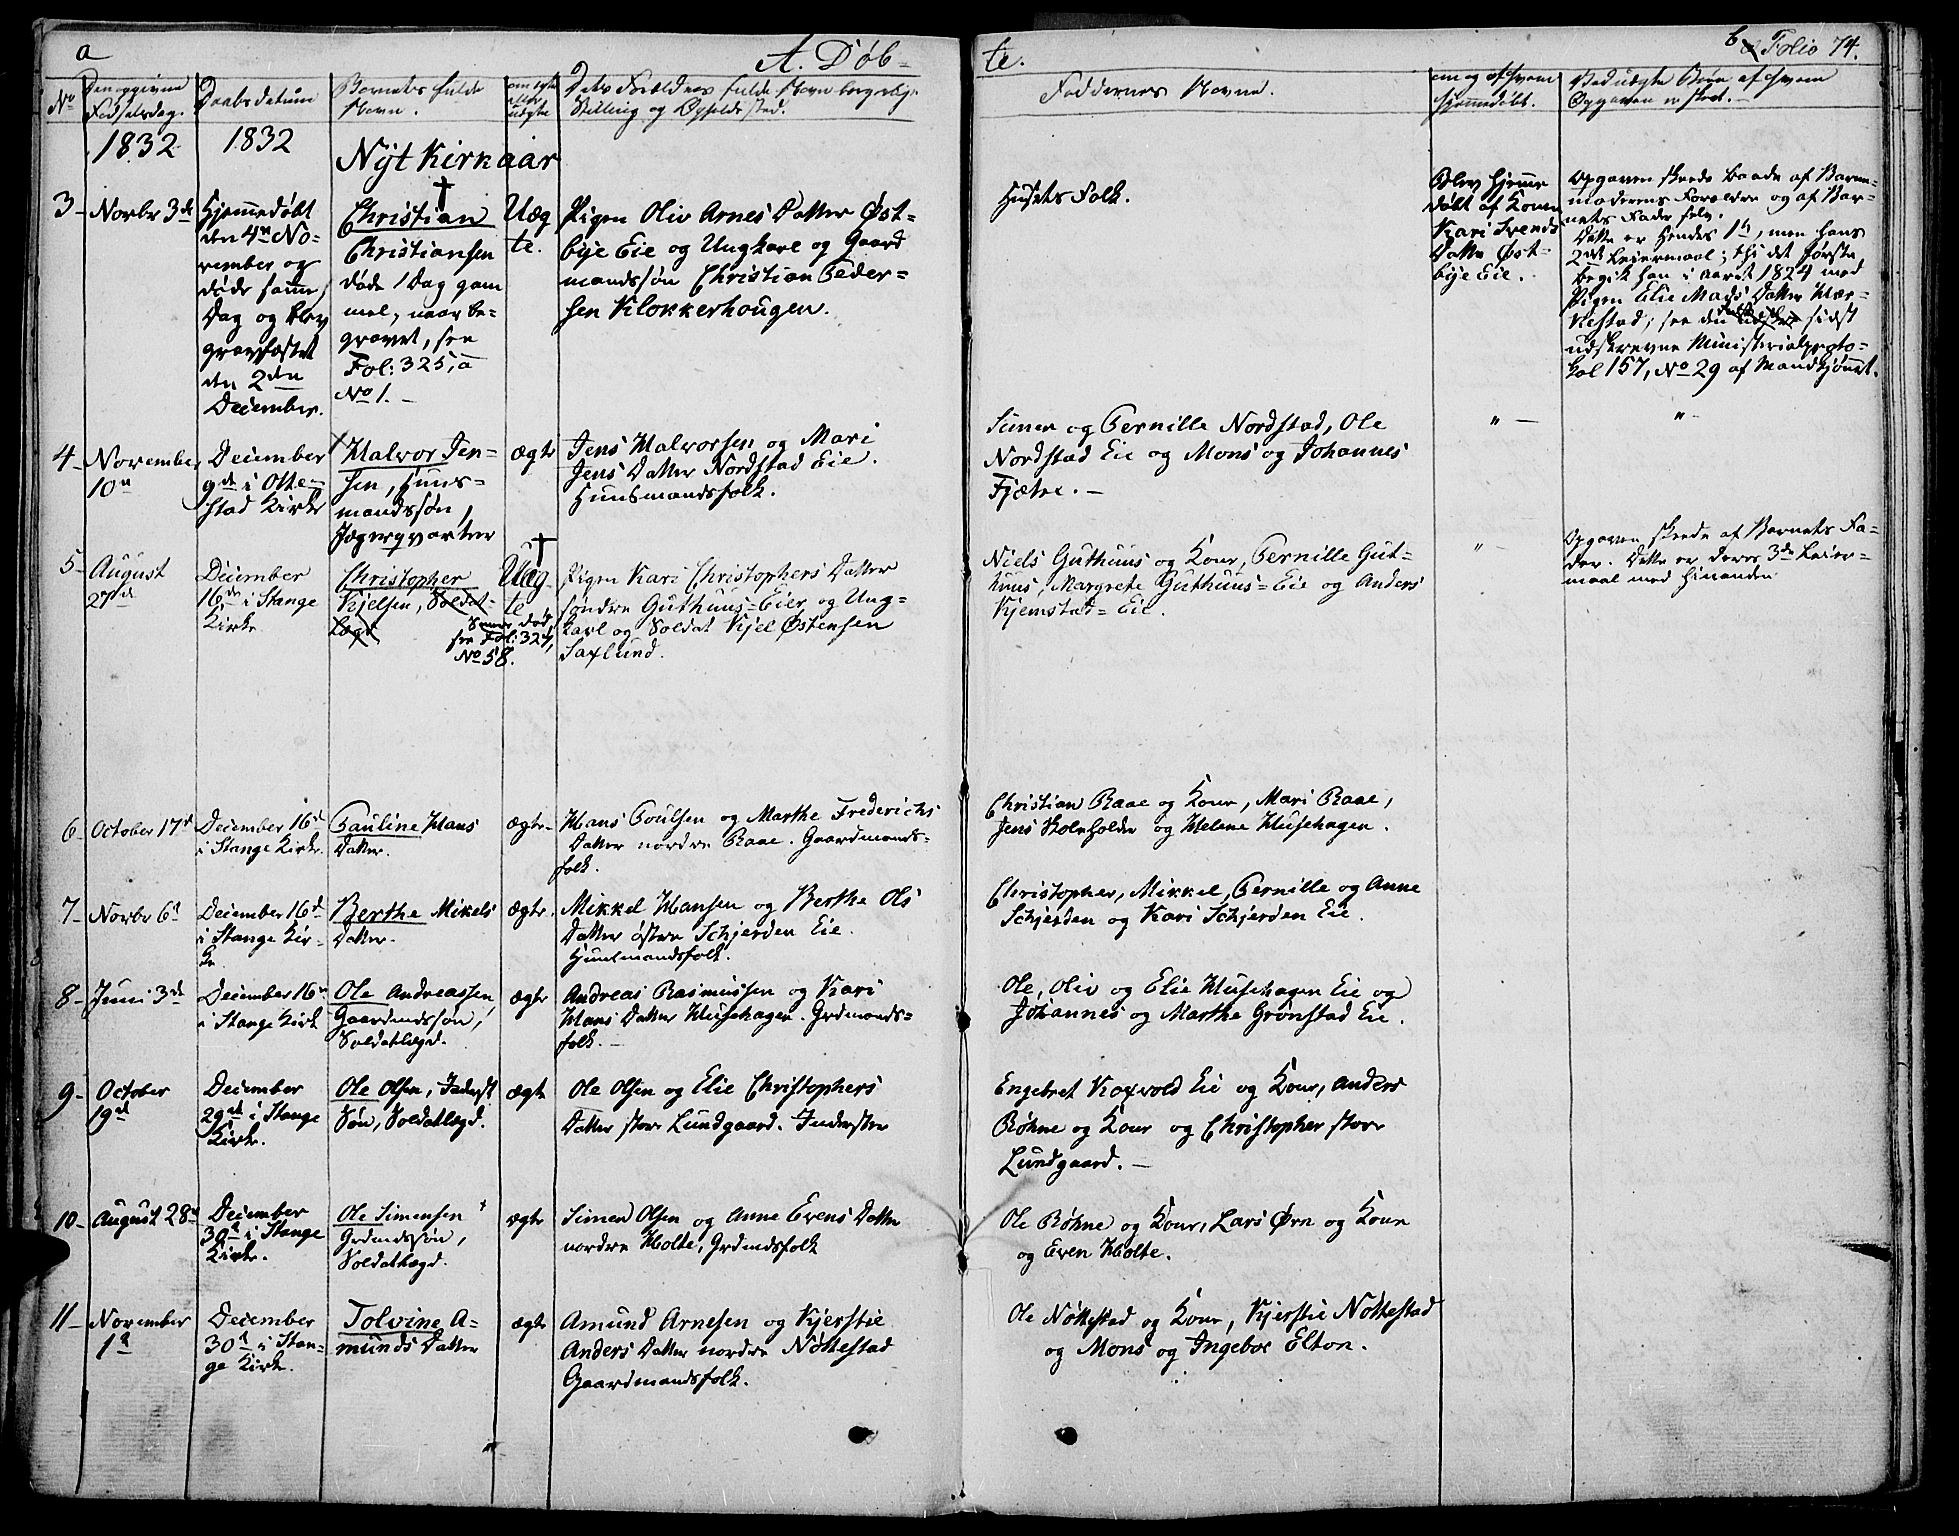 a
A. Døb-
te.
b Folio 74.
No
Den opgivne Fødselsdag.
Daabsdatum
Barnets fulde Navn.
om ægte eller uægte
Dets Forældres fulde Navn
Stilling og Opholdssted.
Faddernes Navne.
om og af hvem hjemmedøbt.
Ved uægte Børn af hvem
Opgaven er skeet.
1832
1832
Nyt Kirkaar
3-
Novbr 3de
Hjemmedøbt
den 4de No-
vember og
døde samme
Dag og blev
gravfæstet
den 2den
December.
Christian
Christiansen
døde 1 Dag gam
mel, naar be-
gravet, see
Fol: 325, a
No 1.
Uæg
te.
Pigen Oliv Arnes Datter Øst-
bye Eie og Ungkarl og Gaard
mandssøn Christian Peder-
sen Klokkerhougen.
Husets Folk.
Blev hjemme
døbt af Konen
Kari Svends
Datter Øst-
bye Eie.
Opgaven skeede baade af Barne-
moderens Forældre og af Bar-
nets Fader selv.
Dette er Hendes 1te, men hans
2det Leiermaal; thi det første
begik han i Aaret 1824 med
Pigen Elie Mads Datter Hær-
nestad; see den sidst
udskrevne Ministerialproto-
kol 157, No 29 af Mandkjønnet.
4-
November
10de
December
9de i Otte-
stad Kirke
Halvor Jen-
sen, Huus-
mandssøn,
Jægerqvarteer
ægte
Jens Halvorsen og Mari
Jens Datter Nordstad Eie.
Huusmandsfolk.
Simen og Pernille Nordstad, Ole
Nordstad Eie og Mons og Johannes
Fjætre.
" -
" -
5-
August
27de
December
16de i Stange
Kirke
Christopher
Kjelsen, Soldat-
lægd
Senere død,
see Fol: 324,
No 58.
Uæg
te
Pigen Kari Christophers Datter
søndre Guthuus-Eier og Ung-
karl og Soldat Kjel Østensen
Saxlund.
Niels Guthuus og Kone, Pernille Gut-
huus, Margrete Guthuus-Eie og Anders
Kjemstad-Eie.
" -
Opgaven skeede af Barnets Fa-
der. Dette er deres 3de Leier-
maal med hinanden
6-
October 17de
December 16de
i Stange Kirke.
Pauline Hans
Datter.
ægte-
Hans Poulsen og Marthe Frederichs
Datter nordre Raae. Gaardmands-
folk.
Christian Raae og Kone, Mari Raae,
Jens Skoleholder og Helene Husehagen.
7-
Novbr 6te
December 16de
i Stange Kir-
ke
Berthe Mikels
Datter.
ægte.
Mikkel Hansen og Berthe Ols
Datter østre Schjerden Eie.
Huusmandsfolk.
Christopher, Mikkel, Pernille og Anne
Schjerden og Kari Schjerden Eie.
8-
Juni 3de
December 16de
i Stange Kirke
Ole Andreassen,
Gaardmdssøn,
Soldatlægd.
ægte
Andreas Rasmussen og Kari
Hans Datter Husehagen. Grdmands-
folk.
Ole, Oliv og Elie Husehagen Eie og
Johannes og Marthe Grønstad Eie.
9-
October
19de
December
29de i Stange
Kirke.
Ole Olsen, Inderst
Søn, Soldatlægd.
ægte
Ole Olsen og Elie Christophers
Datter store Lundgaard. Inderster
Engebret Koxvold Eie og Kone, Anders
Røhne og Kone og Christopher store
Lundgaard.
10-
August 28de
December
30te i Stange
Kirke.
Ole Simensen
Grdmdssøn,
Soldatlægd.
ægte
Simen Olsen og Anne Evens Datter
nordre Holte, Grdmdsfolk
Ole Røhne og Kone, Lars Ørn og Kone
og Even Holte.
11-
November
1te
December
30te i Stan-
ge Kirke.
Tolvine A-
munds Datter
ægte
Amund Arnesen og Kjerstie
Anders Datter nordre Nøttestad
Gaardmandsfolk.
Ole Nøttestad og Kone, Kjerstie Nøttestad
og Mons og Ingebor Elton.